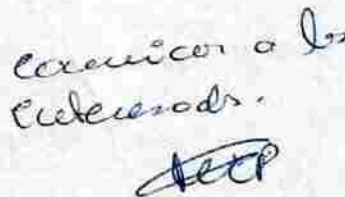 comunicar a los
interesados.